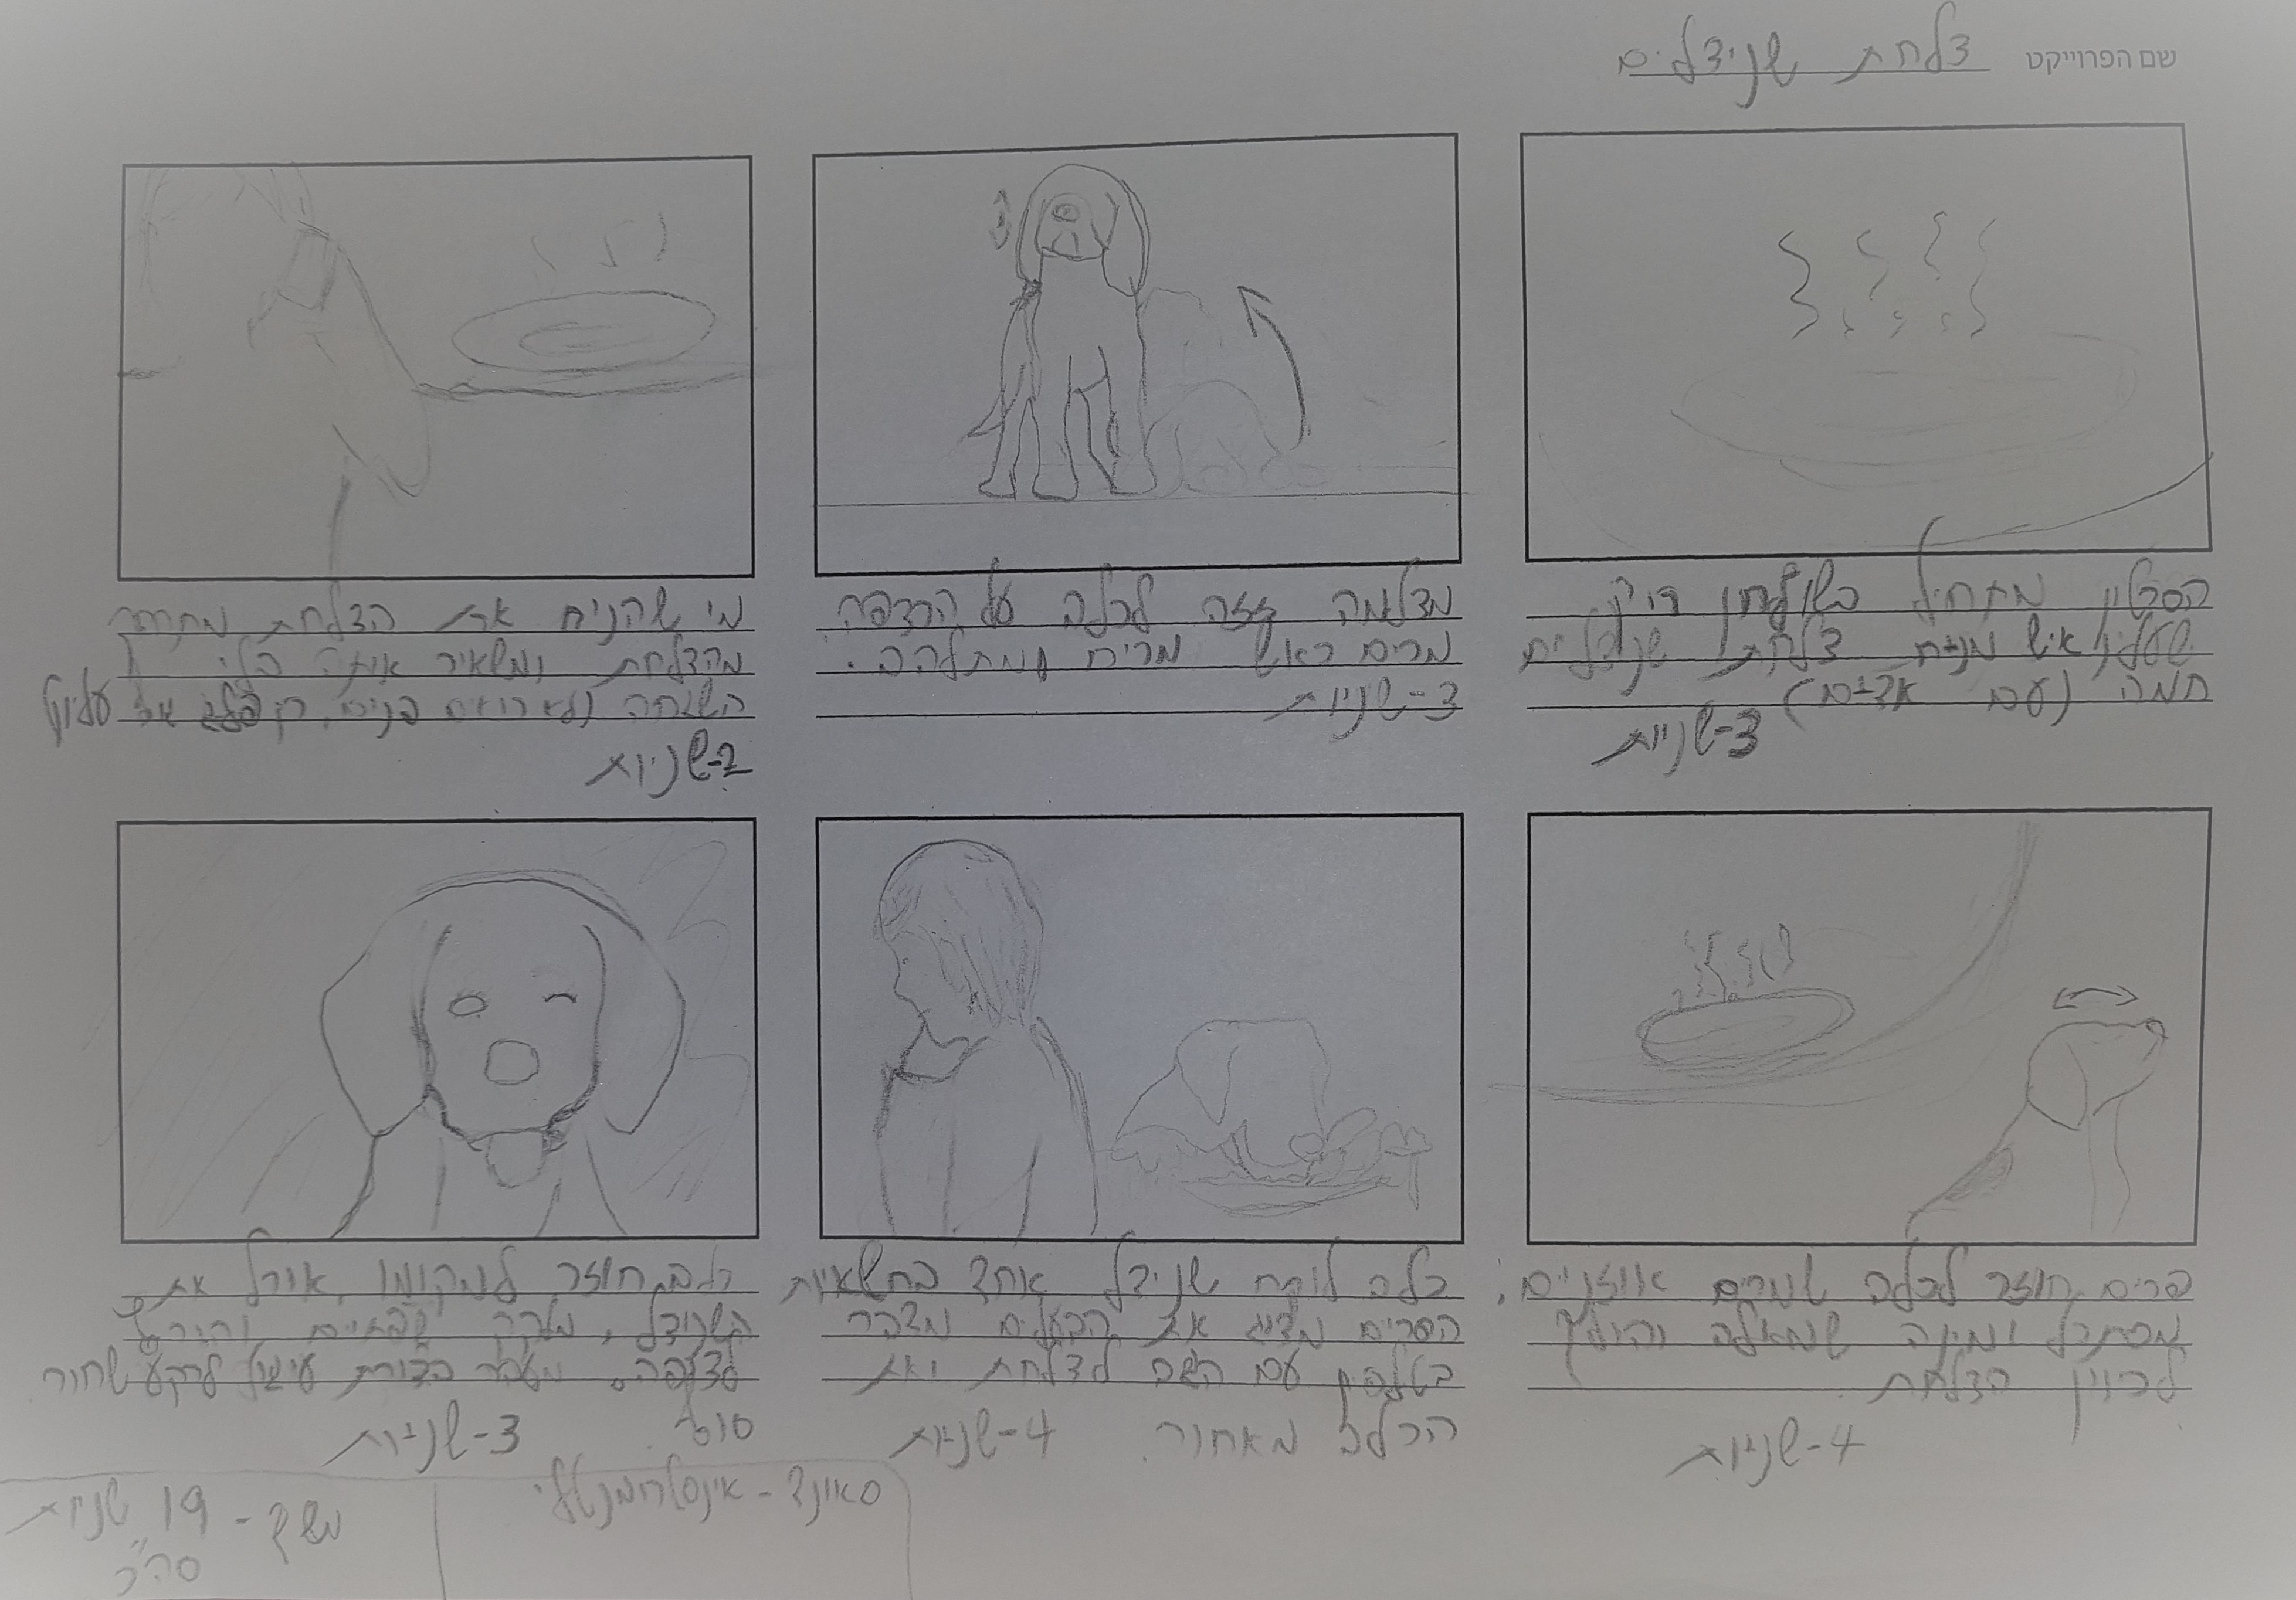 שם הפרוייקט צלחת שניצלים
הסרטון מתחיל בשולחן ריק
שעליו איש מניח צלחת שניצלים
חמה (עם אדים)
3-שניות
מצלמה זזה לכלב על הרצפה
מרים ראש מריח ומתלהב.
3-שניות
מי שהניח את הצלחת מתרחק
מהצלחת ומשאיר אותה בלי
השגחה (לא רואים פנים, רק פלג גוף עליון
2-שניות
פריים חוזר לכלב שמרים אוזניים,
מסתכל ימינה שמאלה והולך
לכיוון הצלחת
4-שניות
כלב לוקח שניצל אחד בחשאיות
הפריים מציג את הבעלים מדבר
בטלפון עם הגב לצלחת ואת
הכלב מאחור. 4-שניות
כלב חוזר למקומו, אוכל את
השניצל, מלקק שפתיים וקורץ
למצלמה. מעבר בצורת עיגול לרקע שחור
סוף. 3-שניות
סאונד - אינסטרומנטלי
משך - 19 שניות
סה"כ